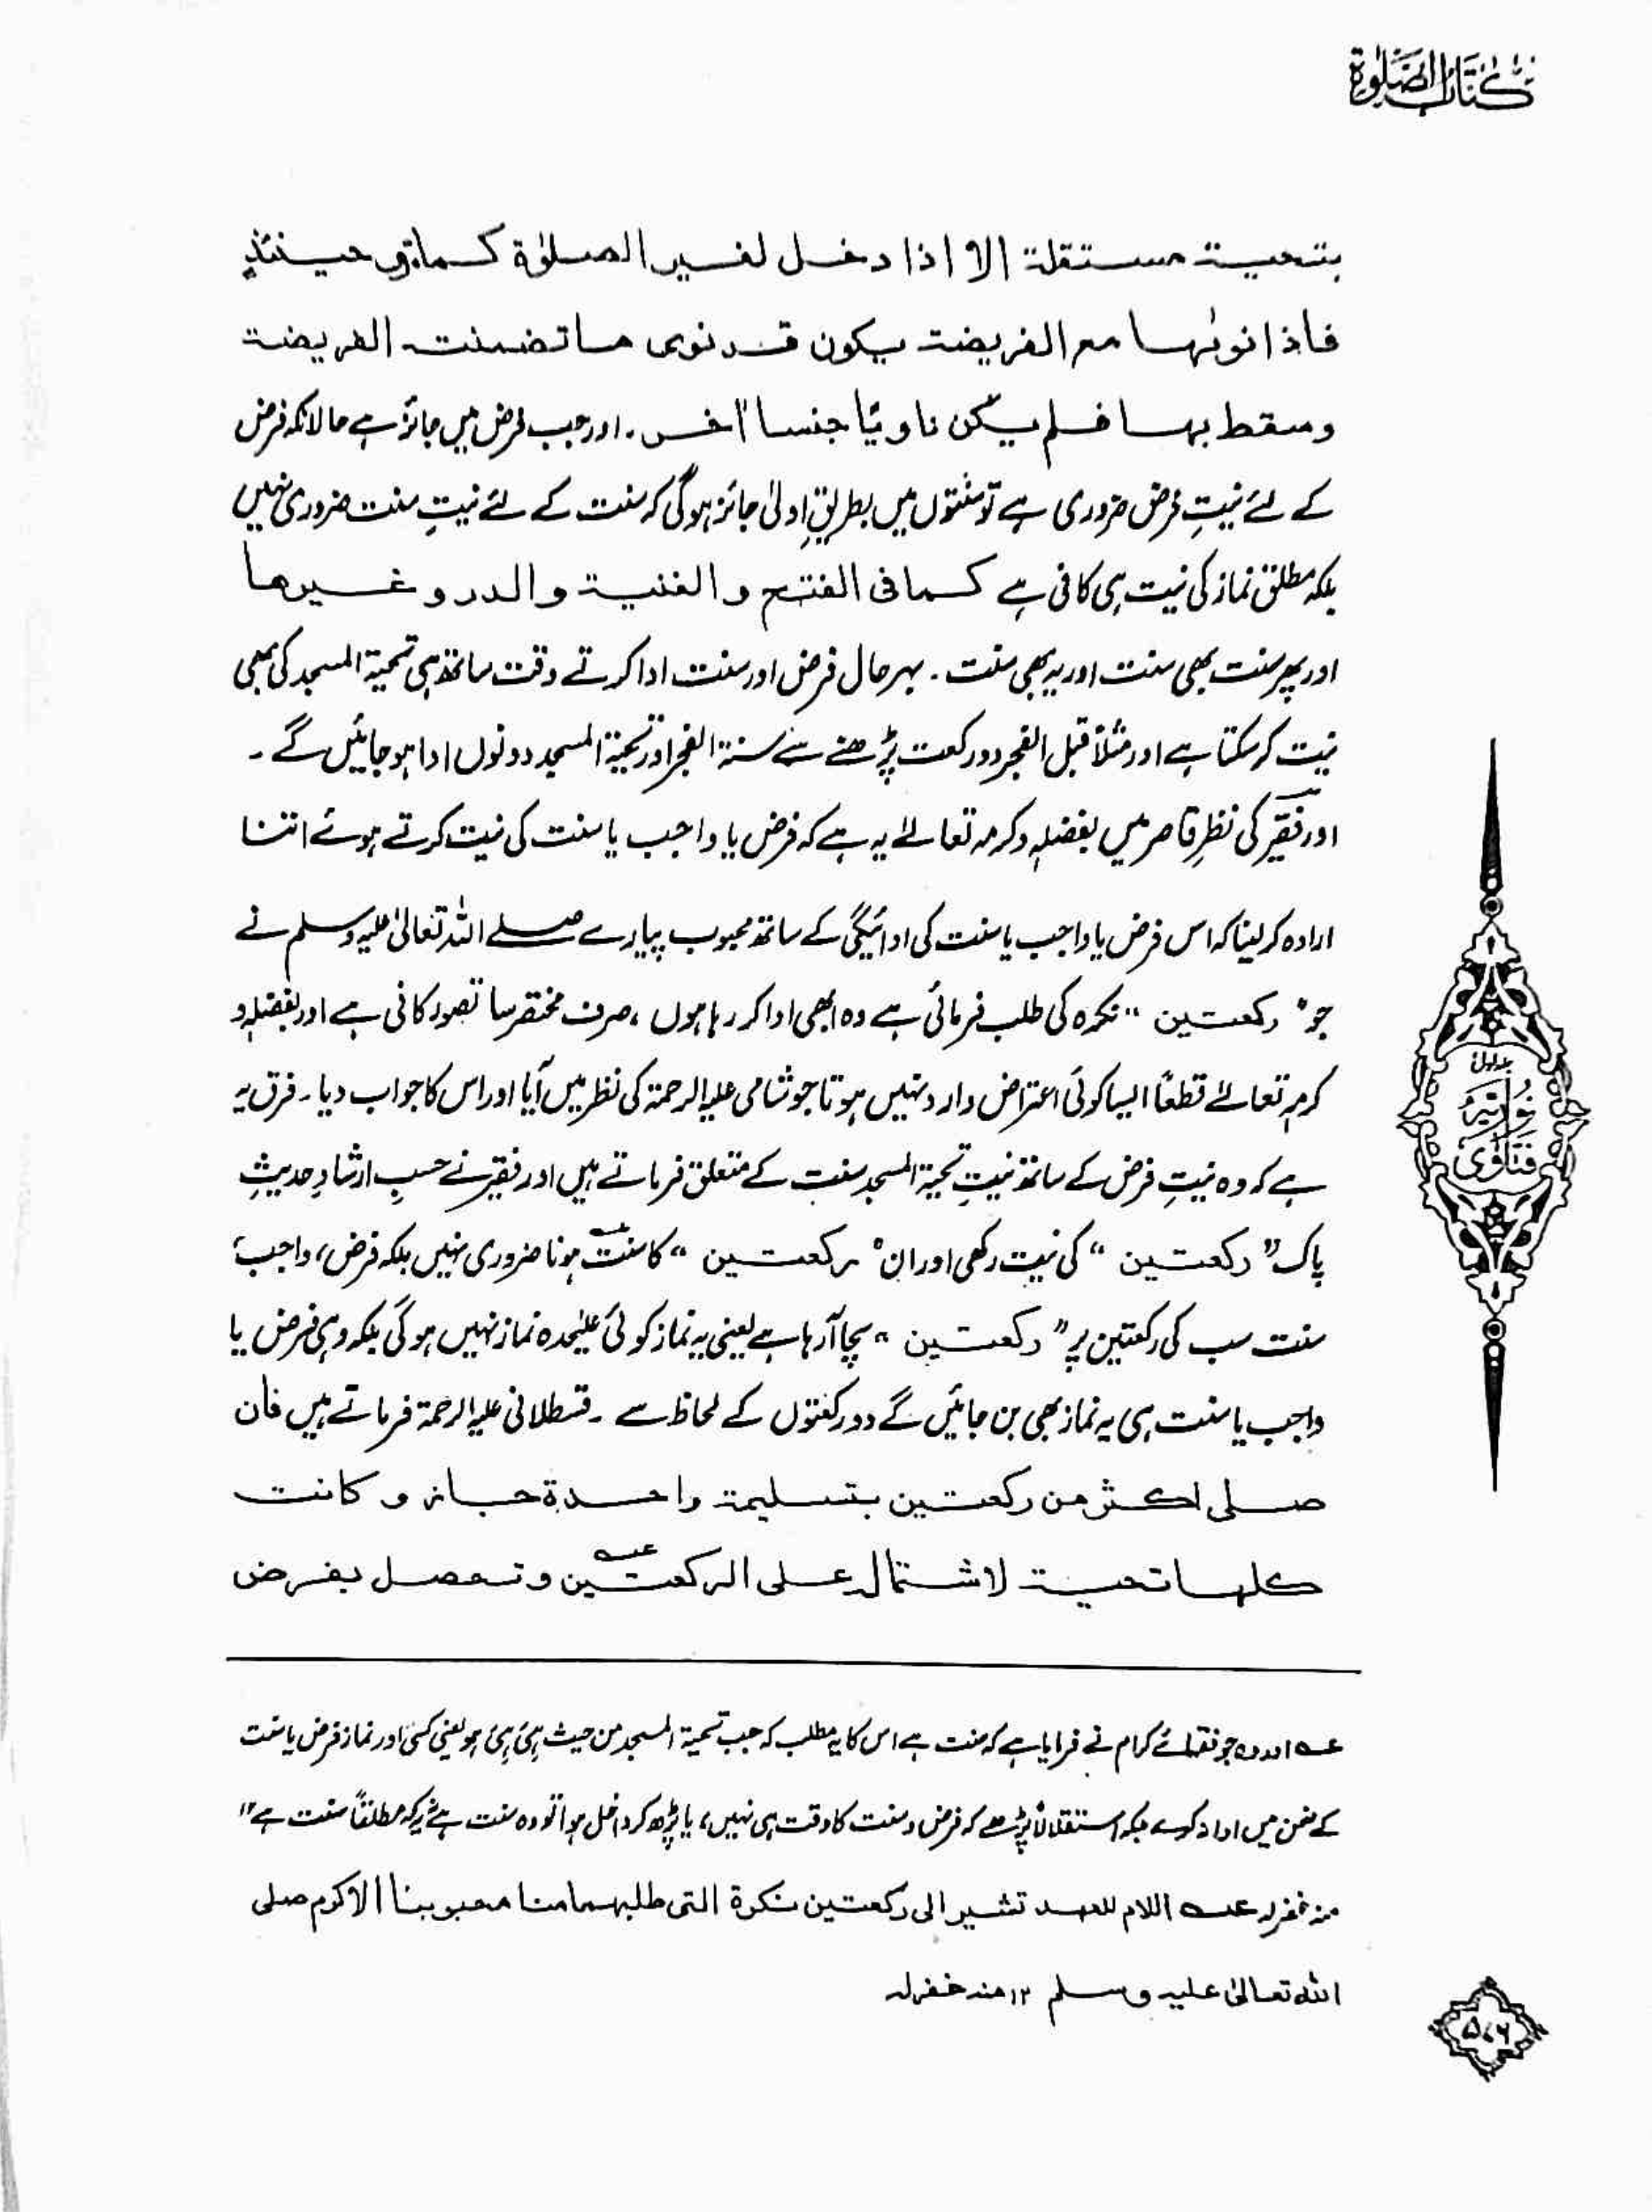 كتاب الصلوة
بتحية مستقلة الا اذا دخل لغير الصلوٰة كما تری حینئذٍ
فاذا نوٰىها مع الفريضة يكون قد نوى ما تضمنت الفريضة
وسقط بها فلم يكن ناويًا جنسا اٰخر۔ اور جب فرض میں جائز ہے حالانکہ فرض
کے لئے نیتِ فرض ضروری ہے تو سنتوں میں بطریقِ اولیٰ جائز ہوگی کہ سنت کے لئے نیتِ سنت ضروری نہیں
بلکہ مطلق نماز کی نیت ہی کافی ہے كما فى الفتح و الغنية و الدر و غيرها
اور پھر سنت بھی سنت اور یہ بھی سنت۔ بہرحال فرض اور سنت ادا کرتے وقت ساتھ ہی تحیۃ المسجد کی بھی
نیت کر سکتا ہے اور مثلاً قبل الفجر دو رکعت پڑھنے سے سنۃ الفجر اور تحیۃ المسجد دونوں ادا ہو جائیں گے۔
اور فقیر کی نظرِ قاصر میں بفضلہ وکرمہ تعالےٰ یہ ہے کہ فرض یا واجب یا سنت کی نیت کرتے ہوئے اتنا
ارادہ کرلینا کہ اس فرض یا واجب یا سنت کی ادائیگی کے ساتھ محبوب پیارے صلے اللہ تعالیٰ علیہ وسلم نے
جو " ركعتين " نکرہ کی طلب فرمائی ہے وہ ابھی ادا کر رہا ہوں ، صرف مختصر سا تصور کافی ہے اور بفضلہ و
کرمہ تعالےٰ قطعاً ایسا کوئی اعتراض وارد نہیں ہوتا جو شامی علیہ الرحمۃ کی نظر میں آیا اور اس کا جواب دیا۔ فرق یہ
ہے کہ وہ نیتِ فرض کے ساتھ نیتِ تحیۃ المسجد سنت کے متعلق فرماتے ہیں اور فقیر نے حسبِ ارشادِ حدیثِ
پاک " ركعتين " کی نیت رکھی اور ان " ركعتين " کا سنت عہ ہونا ضروری نہیں بلکہ فرض، واجب،
سنت سب کی رکعتین پر " ركعتين " سچا آرہا ہے یعنی یہ نماز کوئی علیٰحدہ نماز نہیں ہوگی بلکہ وہی فرض یا
واجب یا سنت ہی یہ نماز بھی بن جائیں گے دو رکعتوں کے لحاظ سے ۔ قسطلانی علیہ الرحمۃ فرماتے ہیں فان
صلى اكثر من ركعتين بتسليمة واحدة جاز و كانت
كلها تحية لاشتمالہ على الركعتين عہ و تحصل بفرض
عہ اور وہ جو فقہائے کرام نے فرمایا ہے کہ سنت ہے اس کا یہ مطلب کہ جب تحیۃ المسجد من حیث ہی ہی ہو یعنی کسی اور نماز فرض یا سنت
کے ضمن میں ادا نہ کرے جبکہ استقلالاً پڑھے کہ فرض و سنت کا وقت ہی نہیں، یا پڑھ کر داخل ہوا تو وہ سنت ہے نہ یہ کہ مطلقاً سنت ہے ۱۲
منہ غفرلہ عہ اللام للعهد تشير الى ركعتين نكرة التى طلبهما منا محبوبنا الاكرم صلى
الله تعالىٰ عليه وسلم ۱۲ منہ غفرلہ
جلد اول
فتاوٰی نوریہ
۵۷۶